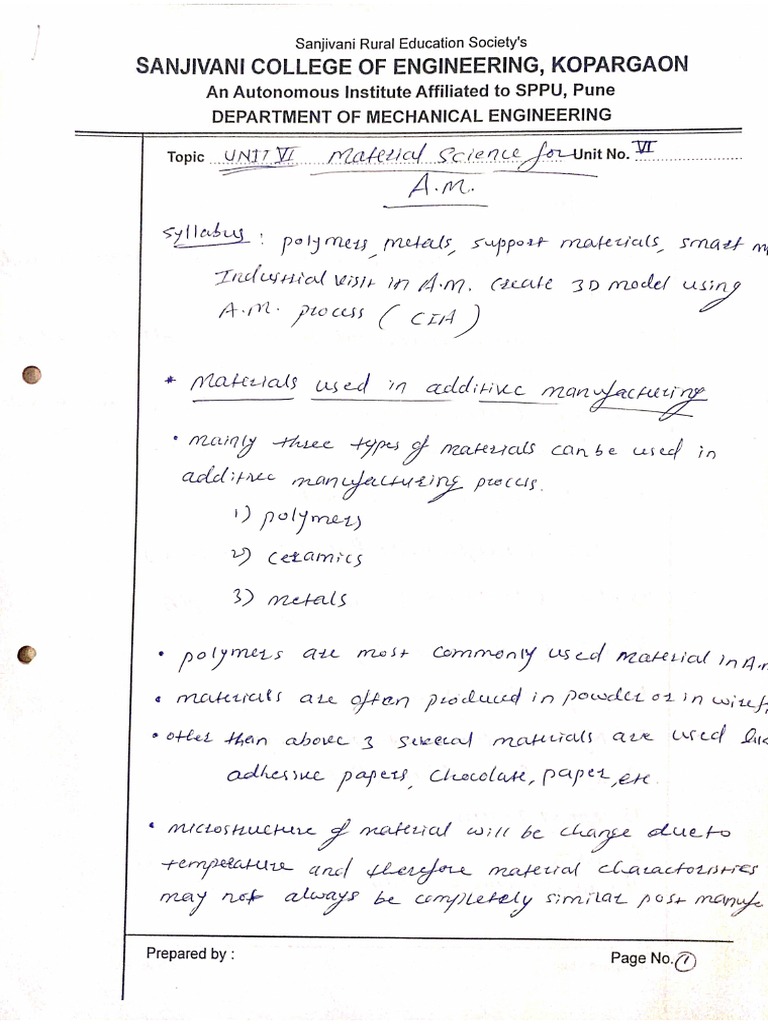 Sanjivani Rural Education Society's
SANJIVANI COLLEGE OF ENGINEERING, KOPARGAON
An Autonomous Institute Affiliated to SPPU, Pune
DEPARTMENT OF MECHANICAL ENGINEERING
Topic UNIT VI Material Science for Unit No. VI
A.M.
Syllabus : polymers, metals, support materials, smart m
Industrial visit in A.M. create 3D model using
A.M. process ( CIA )
* Materials used in additive manufacturing
• Mainly three types of materials can be used in
additive manufacturing process.
1) polymers
2) ceramics
3) metals
• polymers are most commonly used material in A.M
• materials are often produced in powder or in wire f
• other than above 3 several materials are used
adhesive papers, chocolate, paper, etc.
• microstructure of material will be change due to
temperature and therefore material characteristics
may not always be completely similar post manufa
Prepared by :
Page No. 1